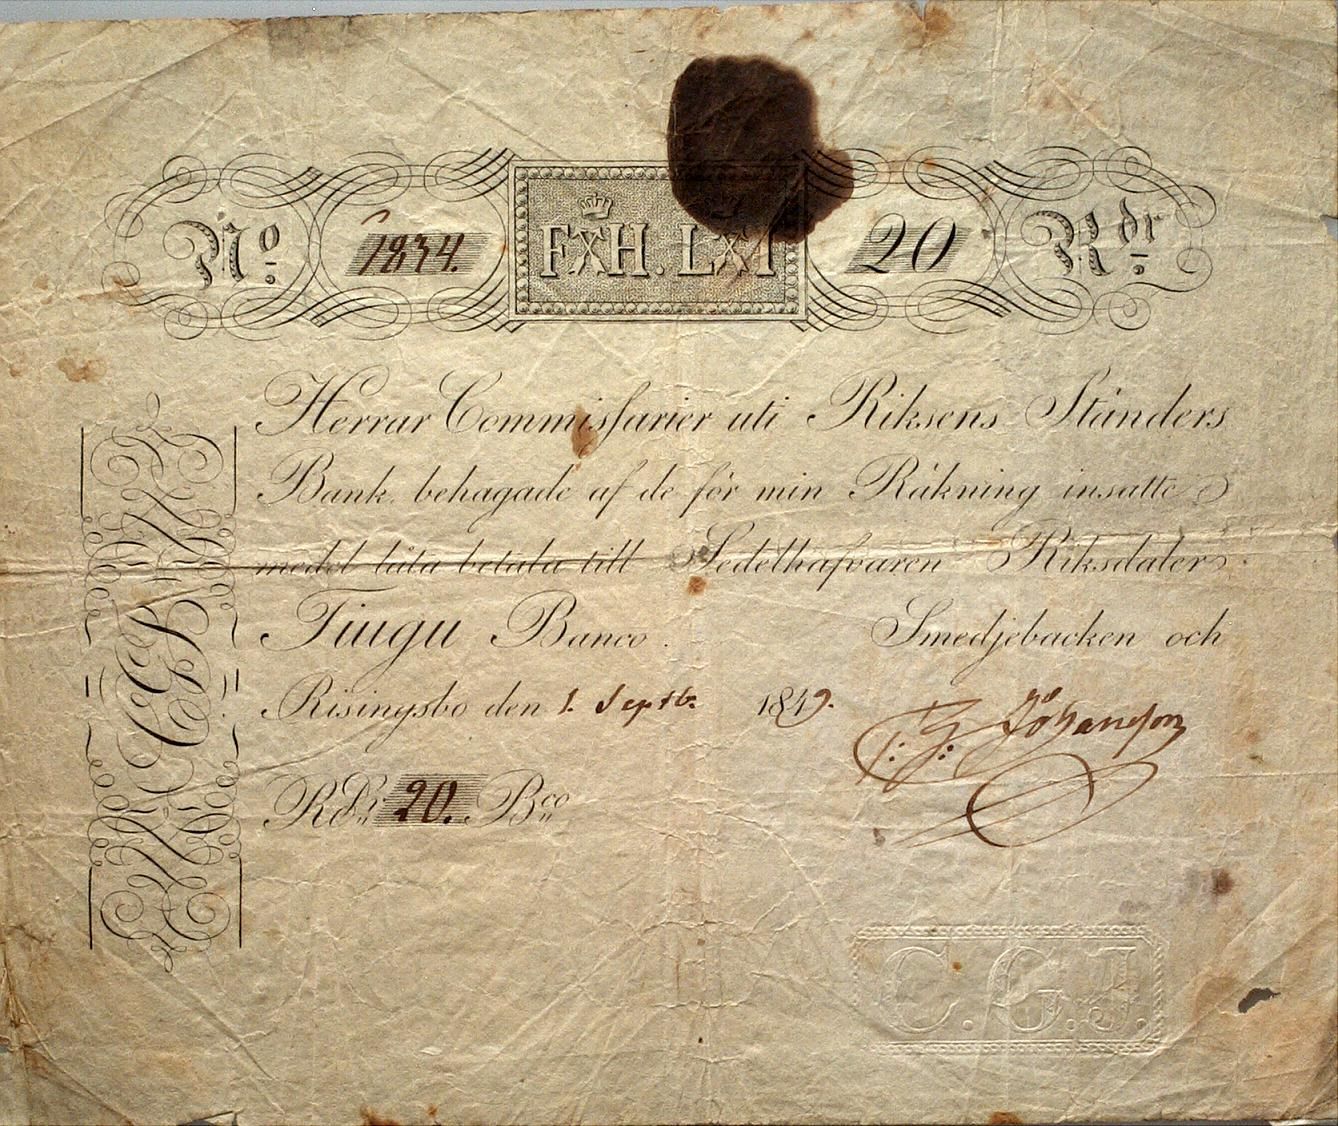 No 1834. FXH. LXI 20 Rdr
Herrar Commissarier uti Riksens Ständers
Bank behagade af de för min Räkning insatte
medel låta betala till Sedelhafvaren Riksdaler
Tiugu Banco. Smedjebacken och
Risingsbo den 1. Septb. 1849.
C. G. Johansson
RdR 20. Bco
C. G. J.